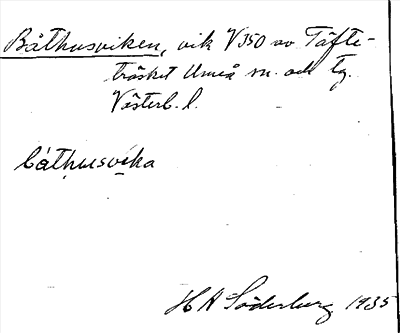 Båthusviken, vik V350 av Täfte-
träsket Umeå sn. och tg.
Västerb. l.
båthusvika
H A Söderberg 1935